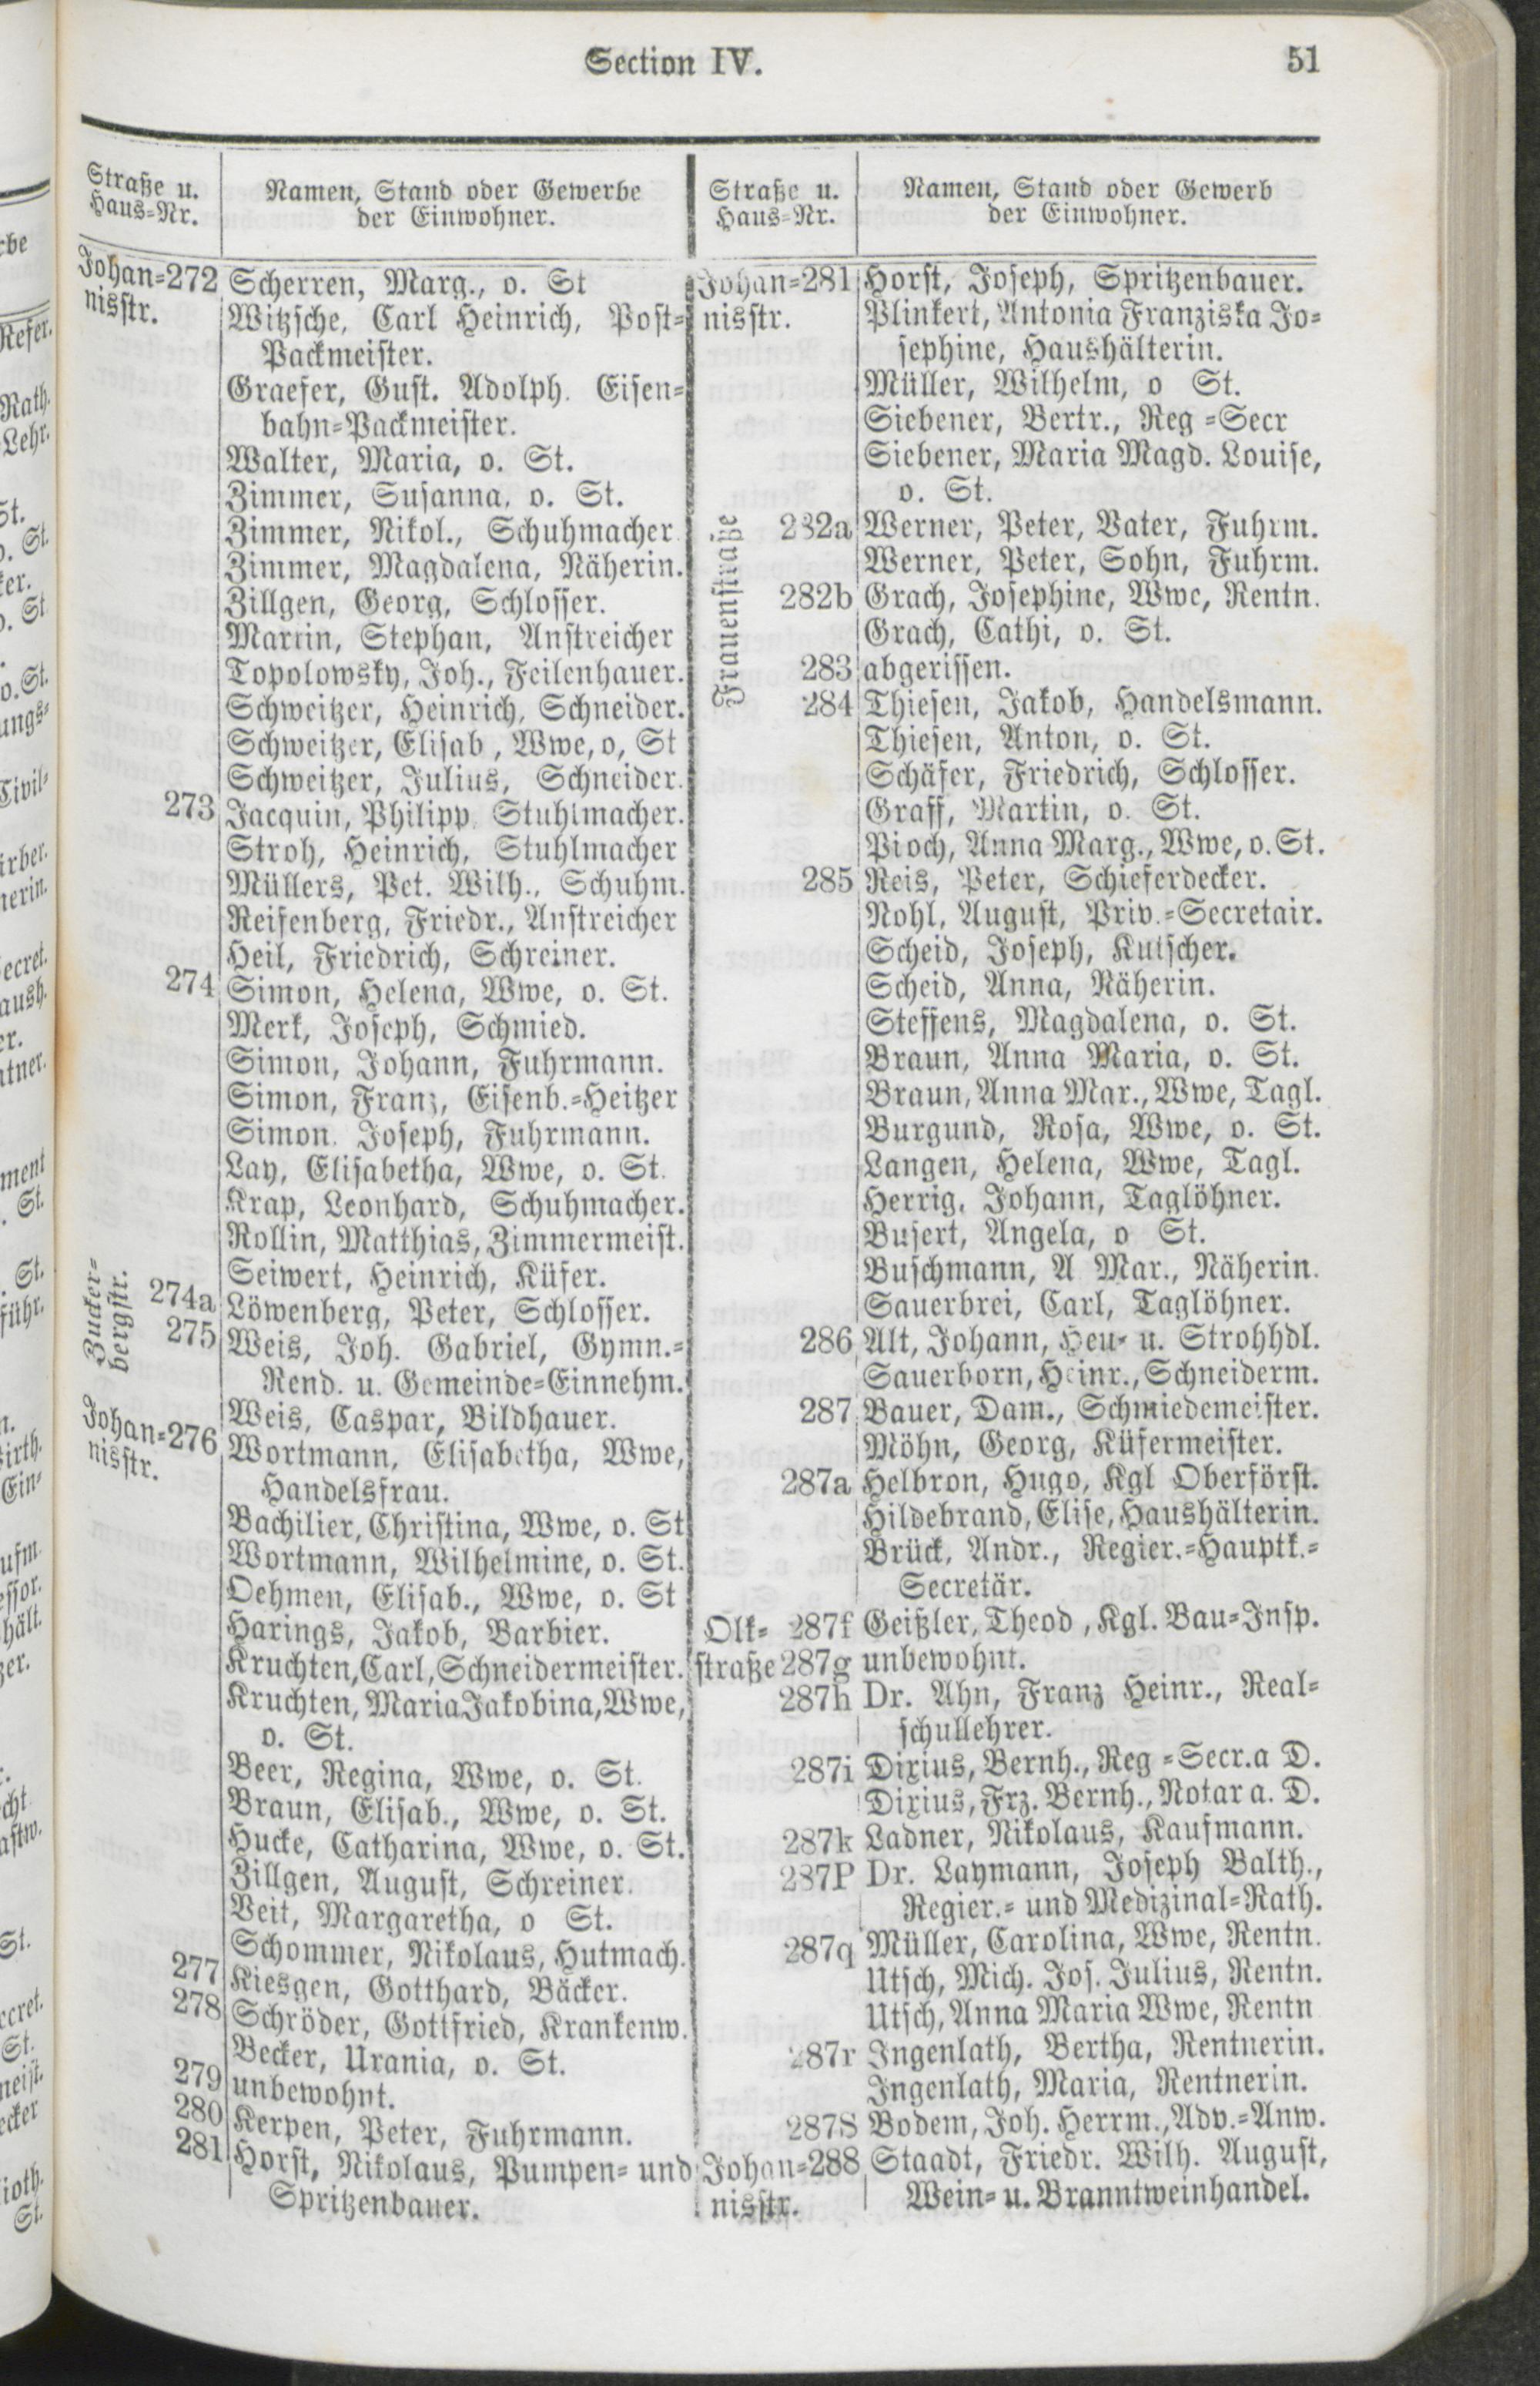 Section IV.
51
Straße u.
Haus=Nr.
Namen, Stand oder Gewerbe
der Einwohner.
Johan=272 Scherren, Marg., o. St
nisstr. Witzsche, Carl Heinrich, Post=
Packmeister.
Graefer, Gust. Adolph. Eisen=
bahn=Packmeister.
Walter, Maria, o. St.
Zimmer, Susanna, o. St.
Zimmer, Nikol., Schuhmacher
Zimmer, Magdalena, Näherin.
Zillgen, Georg, Schlosser.
Martin, Stephan, Anstreicher
Topolowsky, Joh., Feilenhauer.
Schweitzer, Heinrich, Schneider.
Schweitzer, Elisab, Wwe, o, St
Schweitzer, Julius, Schneider.
273 Jacquin, Philipp Stuhlmacher.
Stroh, Heinrich, Stuhlmacher
Müllers, Pet. Wilh., Schuhm.
Reifenberg, Friedr., Anstreicher
Heil, Friedrich, Schreiner.
274 Simon, Helena, Wwe, o. St.
Merk, Joseph, Schmied.
Simon, Johann, Fuhrmann.
Simon, Franz, Eisenb.=Heitzer
Simon. Joseph, Fuhrmann.
Lay, Elisabetha, Wwe, o. St.
Krap, Leonhard, Schuhmacher.
Rollin, Matthias, Zimmermeist.
Seiwert, Heinrich, Küfer.
Zucker=
bergstr.
274a Löwenberg, Peter, Schlosser.
275 Weis, Joh. Gabriel, Gymn.=
Rend. u. Gemeinde=Einnehm.
Weis, Caspar, Bildhauer.
Johan=276 Wortmann, Elisabetha, Wwe,
nisstr. Handelsfrau.
Bachilier, Christina, Wwe, o. St
Wortmann, Wilhelmine, o. St.
Oehmen, Elisab., Wwe, o. St
Harings, Jakob, Barbier.
Kruchten, Carl, Schneidermeister.
Kruchten, Maria Jakobina, Wwe,
o. St.
Beer, Regina, Wwe, o. St.
Braun, Elisab., Wwe, o. St.
Hucke, Catharina, Wwe, o. St.
Zillgen, August, Schreiner.
Veit, Margaretha, o St.
Schommer, Nikolaus, Hutmach.
277 Kiesgen, Gotthard, Bäcker.
278 Schröder, Gottfried, Krankenw.
Becker, Urania, o. St.
279 unbewohnt.
280 Kerpen, Peter, Fuhrmann.
281 Horst, Nikolaus, Pumpen= und
Spritzenbauer.
Straße u.
Haus=Nr.
Namen, Stand oder Gewerb
der Einwohner.
Johan=281 Horst, Joseph, Spritzenbauer.
nisstr. Plinkert, Antonia Franziska Jo=
sephine, Haushälterin.
Müller, Wilhelm, o St.
Siebener, Bertr., Reg =Secr
Siebener, Maria Magd. Louise,
o. St.
Frauenstraße
282a Werner, Peter, Vater, Fuhrm.
Werner, Peter, Sohn, Fuhrm.
282b Grach, Josephine, Wwe, Rentn.
Grach, Cathi, o. St.
283 abgerissen.
284 Thiesen, Jakob, Handelsmann.
Thiesen, Anton, o. St.
Schäfer, Friedrich, Schlosser.
Graff, Martin, o. St.
Pioch, Anna Marg., Wwe, o. St.
285 Reis, Peter, Schieferdecker.
Nohl, August, Priv.=Secretair.
Scheid, Joseph, Kutscher.
Scheid, Anna, Näherin.
Steffens, Magdalena, o. St.
Braun, Anna Maria, o. St.
Braun, Anna Mar., Wwe, Tagl.
Burgund, Rosa, Wwe, o. St.
Langen, Helena, Wwe, Tagl.
Herrig, Johann, Taglöhner.
Busert, Angela, o St.
Buschmann, A Mar., Näherin.
Sauerbrei, Carl, Taglöhner.
286 Alt, Johann, Heu= u. Strohhdl.
Sauerborn, Heinr., Schneiderm.
287 Bauer, Dam., Schmiedemeister.
Möhn, Georg, Küfermeister.
287a Helbron, Hugo, Kgl Oberförst.
Hildebrand, Elise, Haushälterin.
Brück, Andr., Regier.=Hauptk.=
Secretär.
Olk= 287f Geißler, Theod, Kgl. Bau=Insp.
straße 287g unbewohnt.
287h Dr. Ahn, Franz Heinr., Real=
schullehrer.
287i Dixius, Bernh., Reg =Secr. a D.
Dixius, Frz. Bernh., Notar a. D.
287k Ladner, Nikolaus, Kaufmann.
287P Dr. Laymann, Joseph Balth.,
Regier.= und Medizinal=Rath.
287q Müller, Carolina, Wwe, Rentn.
Utsch, Mich. Jos. Julius, Rentn.
Utsch, Anna Maria Wwe, Rentn
287r Ingenlath, Bertha, Rentnerin.
Ingenlath, Maria, Rentnerin.
287S Bodem, Joh. Herrm., Adv.=Anw.
Johan=288 Staadt, Friedr. Wilh. August,
nisstr. Wein= u. Branntweinhandel.